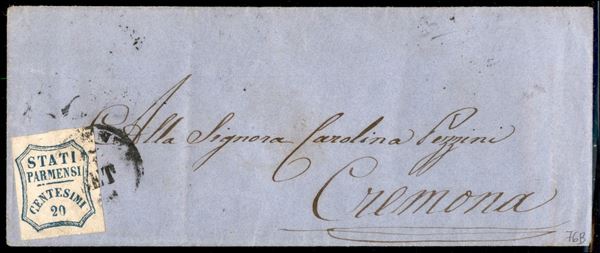 Alla Signora Carolina Pezzini
Cremona
STATI
PARMENSI
CENTESIMI
20
ET
76B